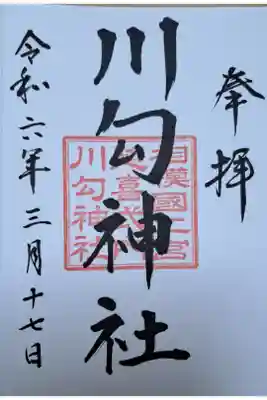 奉拝
川勾神社
相模國二宮
延喜式内
川勾神社
令和六年三月十七日